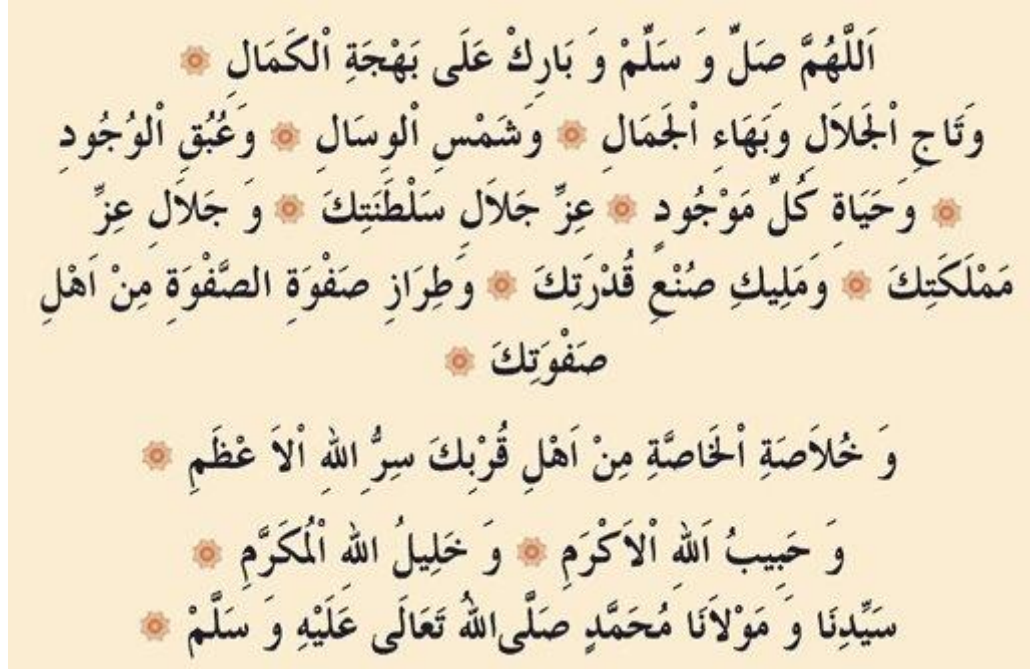 اَللَّهُمَّ صَلِّ وَ سَلِّمْ وَ بَارِكْ عَلَى بَهْجَةِ اْلكَمَالِ ۞
وَتَاجِ اْلجَلاَلِ وَبَهَاءِ اْلجَمَالِ ۞ وَشَمْسِ اْلوِسَالِ ۞ وَعُبُقِ اْلوُجُودِ
۞ وَحَيَاةِ كُلِّ مَوْجُودٍ ۞ عِزِّ جَلاَلِ سَلْطَنَتِكَ ۞ وَ جَلاَلِ عِزِّ
مَمْلَكَتِكَ ۞ وَمَلِيكِ صُنْعِ قُدْرَتِكَ ۞ وَطِرَازِ صَفْوَةِ الصَّفْوَةِ مِنْ اَهْلِ
صَفْوَتِكَ ۞
وَ خُلاَصَةِ اْلخَاصَّةِ مِنْ اَهْلِ قُرْبِكَ سِرُّ اللهِ اْلاَ عْظَمِ ۞
وَ حَبِيبُ اَللهِ اْلاَكْرَمِ ۞ وَ خَلِيلُ اللهِ اْلمُكَرَّمِ ۞
سَيِّدِنَا وَ مَوْلاَنَا مُحَمَّدٍ صَلَّى اللهُ تَعَالَى عَلَيْهِ وَ سَلَّمْ ۞